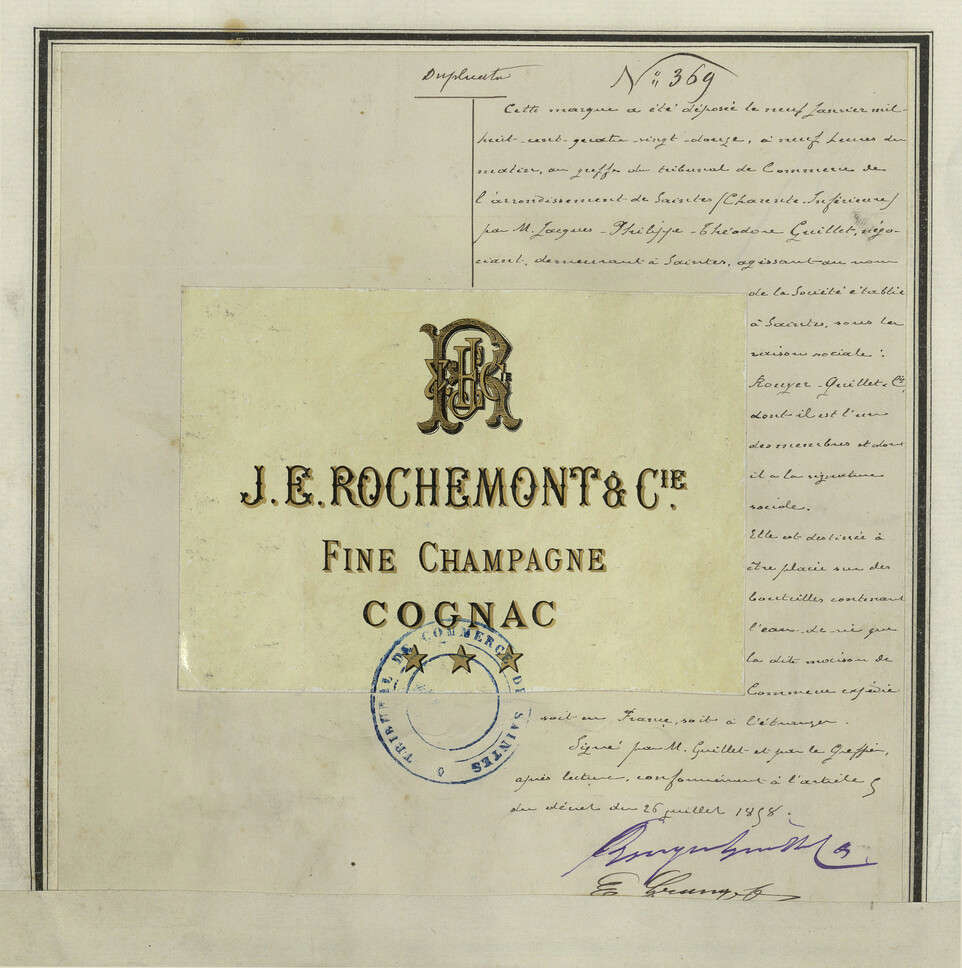 Duplicata
N° 369
Cette marque a été déposée le neuf Janvier mil-
huit-cent-quatre-vingt-douze, à neuf heures du
matin, au greffe du tribunal de Commerce de
l'arrondissement de Saintes (Charente-Inférieure)
par M. Jacques-Philippe-Théodore Guillet, négo-
ciant, demeurant à Saintes, agissant au nom
de la Société établie
à Saintes, sous la
raison sociale :
Rouyer-Guillet & Cie,
dont il est l'un
des membres et dont
il a la signature
sociale.
Elle est destinée à
être placée sur des
bouteilles contenant
l'eau-de-vie que
la dite maison de
Commerce expédie
soit en France, soit à l'étranger.
Signé par M. Guillet et par le Greffier,
après lecture, conformément à l'article 5
du décret du 26 juillet 1858.
J. E. ROCHEMONT & CIE.
FINE CHAMPAGNE
COGNAC
TRIBUNAL DE COMMERCE DE SAINTES